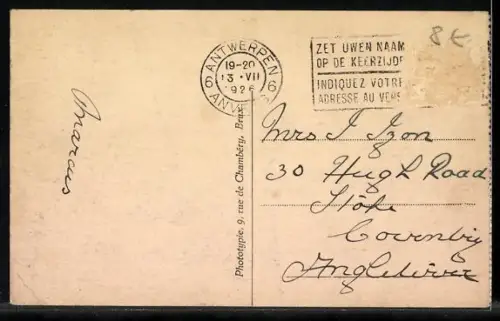 8 €
ANTWERPEN
19-20
13 · VII
1926
6 ANVERS 6
ZET UWEN NAAM
OP DE KEERZIJDE
INDIQUEZ VOTRE
ADRESSE AU VERS
Marcus
Phototypie, 9, rue de Chambéry, Brux
Mrs I Izon
30 Hugh Road
Stoke
Coventry
Angleterre